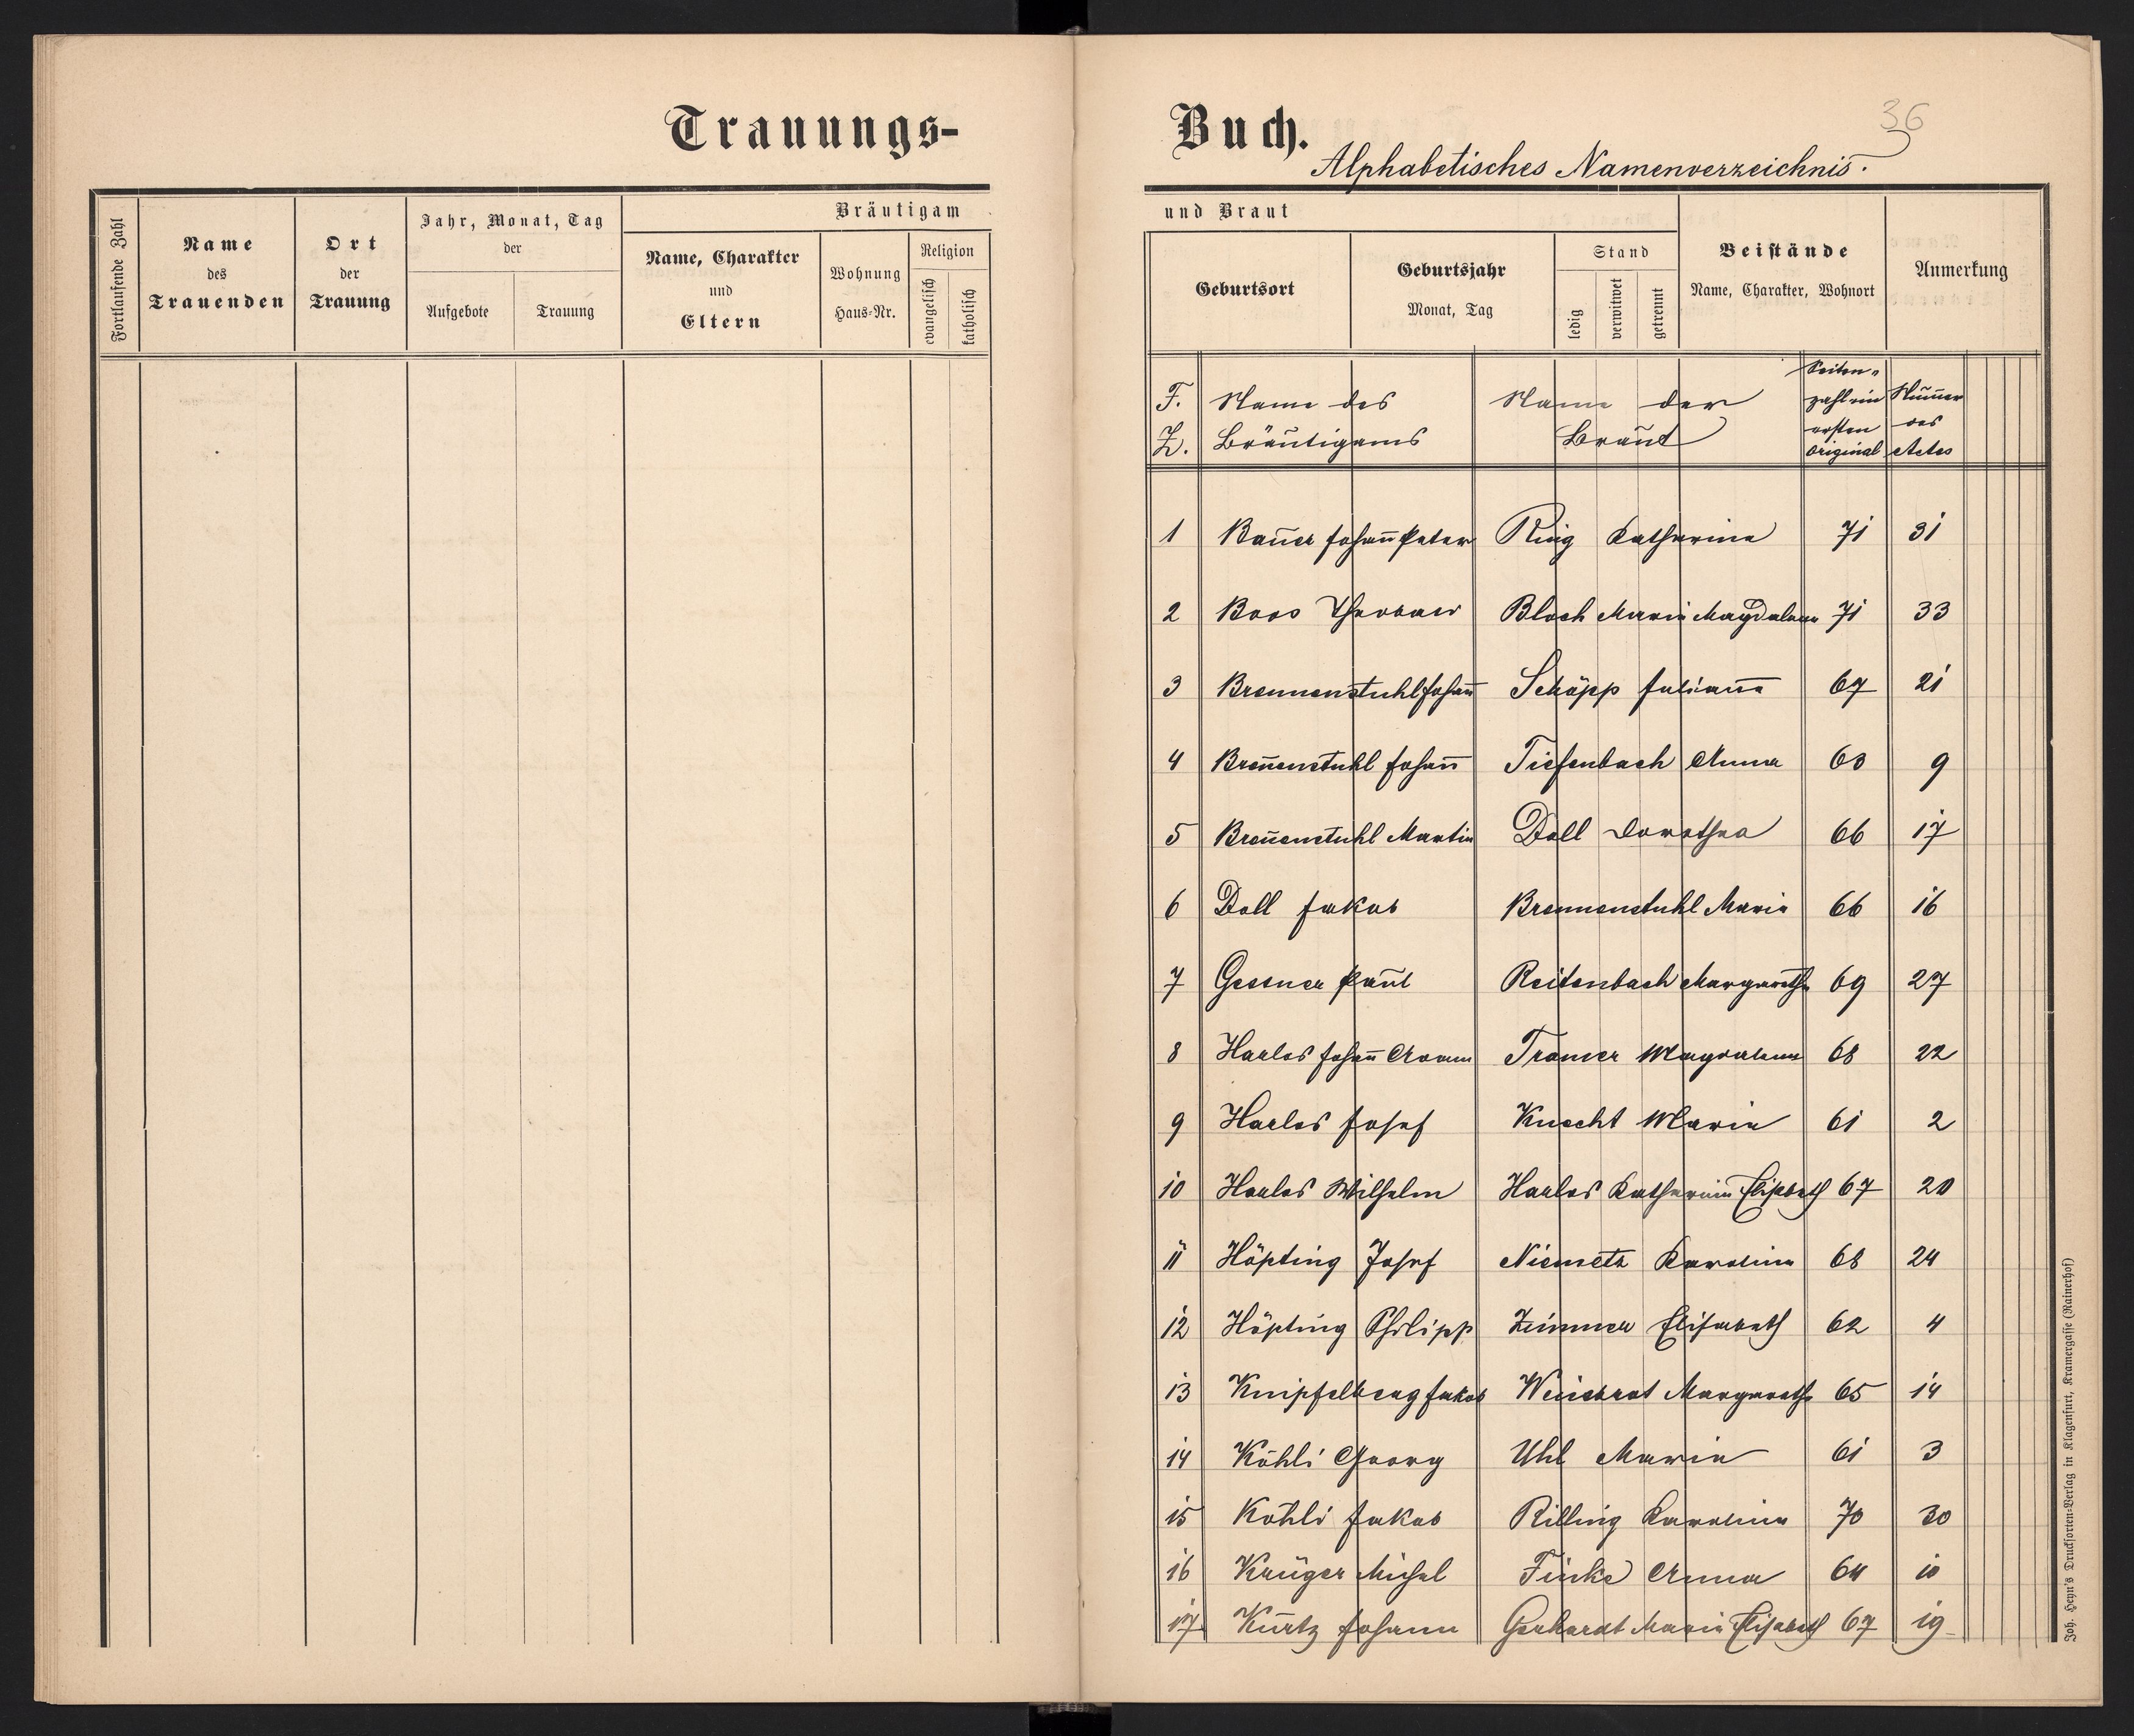 Trauungs-
Fortlaufende Zahl
Name
des
Trauenden
Ort
der
Trauung
Jahr, Monat, Tag
der
Aufgebote
Trauung
Bräutigam
Name, Charakter
und
Eltern
Wohnung
Haus-Nr.
Religion
evangelisch
katholisch
36
Buch.
Alphabetisches Namenverzeichnis.
und Braut
Geburtsort
Geburtsjahr
Monat, Tag
Stand
ledig
verwitwet
getrennt
Beistände
Name, Charakter, Wohnort
Anmerkung
F. Z.
Name des
Bräutigams
Name der
Braut
Seiten-
zahl im
ersten
Original
Num̅er
des
Actes
1 Bauer Johan̅ Peter Ring Katharina 71 31
2 Boos Bloch Maria Magdalena 71 33
3 Brennenstuhl Johan̅ Schöpp Julian̅a 67 21
4 Bren̅enstuhl Johan̅ Tiefenbach Anna 63 9
5 Bren̅enstuhl Martin Doll Dorothea 66 17
6 Doll Jakob Brennenstuhl Maria 66 16
7 Gessner Paul Reitenbach Margaretha 69 27
8 Harlos Johan̅ Adam Tramer Magdalena 68 22
9 Harlos Josef Knecht Maria 61 2
10 Harlos Wilhelm Harlos Katharina Elisabeth 67 20
11 Höpting Josef Niemetz Karolina 68 24
12 Höpting Philipp Zimmer Elisabeth 62 4
13 Knipfelberg Jakob Weinbrot Margaretha 65 14
14 Köhli Georg Uhl Maria 61 3
15 Köhli Jakob Rilling Karolina 70 30
16 Krüger Michel Finke Anna 64 10
17 Kurtz Johann Gerhardt Maria Elisabeth 67 19
Joh. Heyn's Drucksorten-Verlag in Klagenfurt, Kramergasse (Rainerhof)